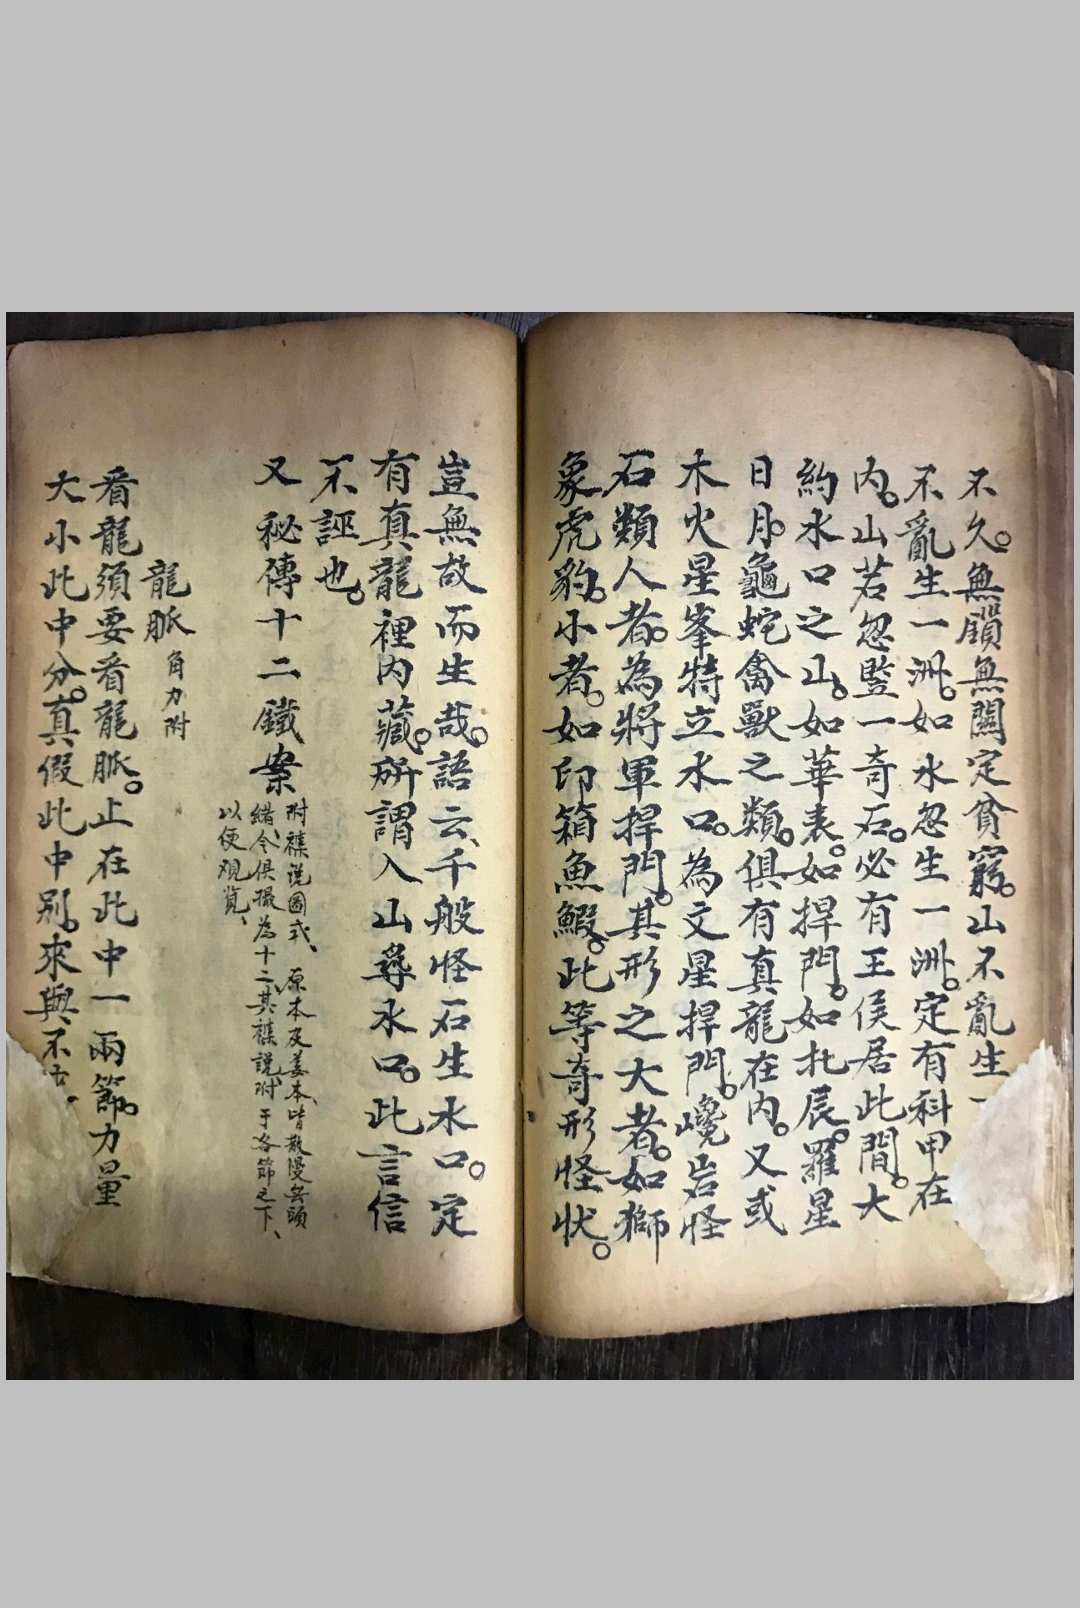 不久。無鎖無關定貧窮。山不亂生一
不亂生一洲。如水忽生一洲。定有科甲在
内。山若忽豎一奇石。必有王侯居此間。大
約水口之山。如華表。如捍門。如北辰。羅星
日月。龜蛇禽獸之類。俱有真龍在内。又或
木火星峯特立水口。為文星捍門。巉岩怪
石類人者。為將軍捍門。其形之大者。如獅
象虎豹。小者。如印箱魚鰕。此等奇形怪状。
豈無故而生哉。語云、千般怪石生水口。定
有真龍裡内藏。所謂入山尋水口。此言信
不誣也。
又秘傳十二鐵案
附襍说圖式、原本及姜本、皆散漫無頭
緒、今俱撮為十二、其襍説附于各節之下、
以便观览、
龍脈 角力附
看龍須要看龍脈。止在此中一兩節。力量
大小此中分。真假此中别。來與不